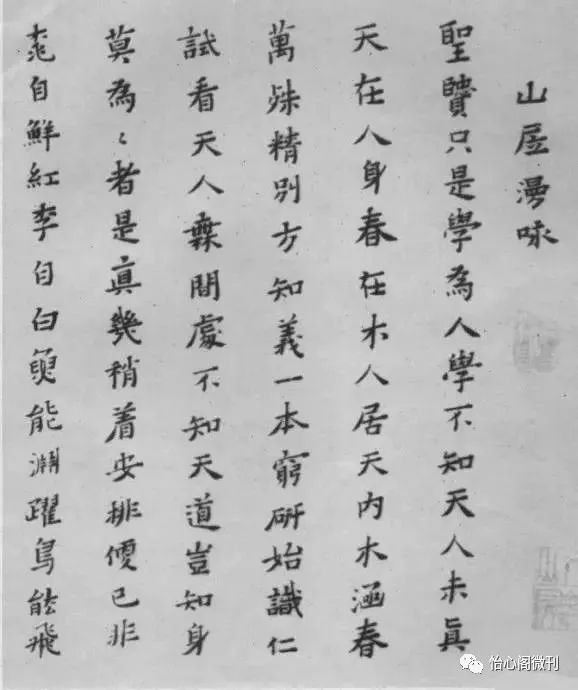 山居漫咏
聖賢只是學為人學不知天人未眞
天在人身春在木人居天内木涵春
萬殊精別方知義一本窮研始識仁
試看天人無間處不知天道豈知身
莫為〻者是眞幾稍着安排便已非
桃自鮮紅李自白魚能淵躍鳥能飛
怡心阁微刊